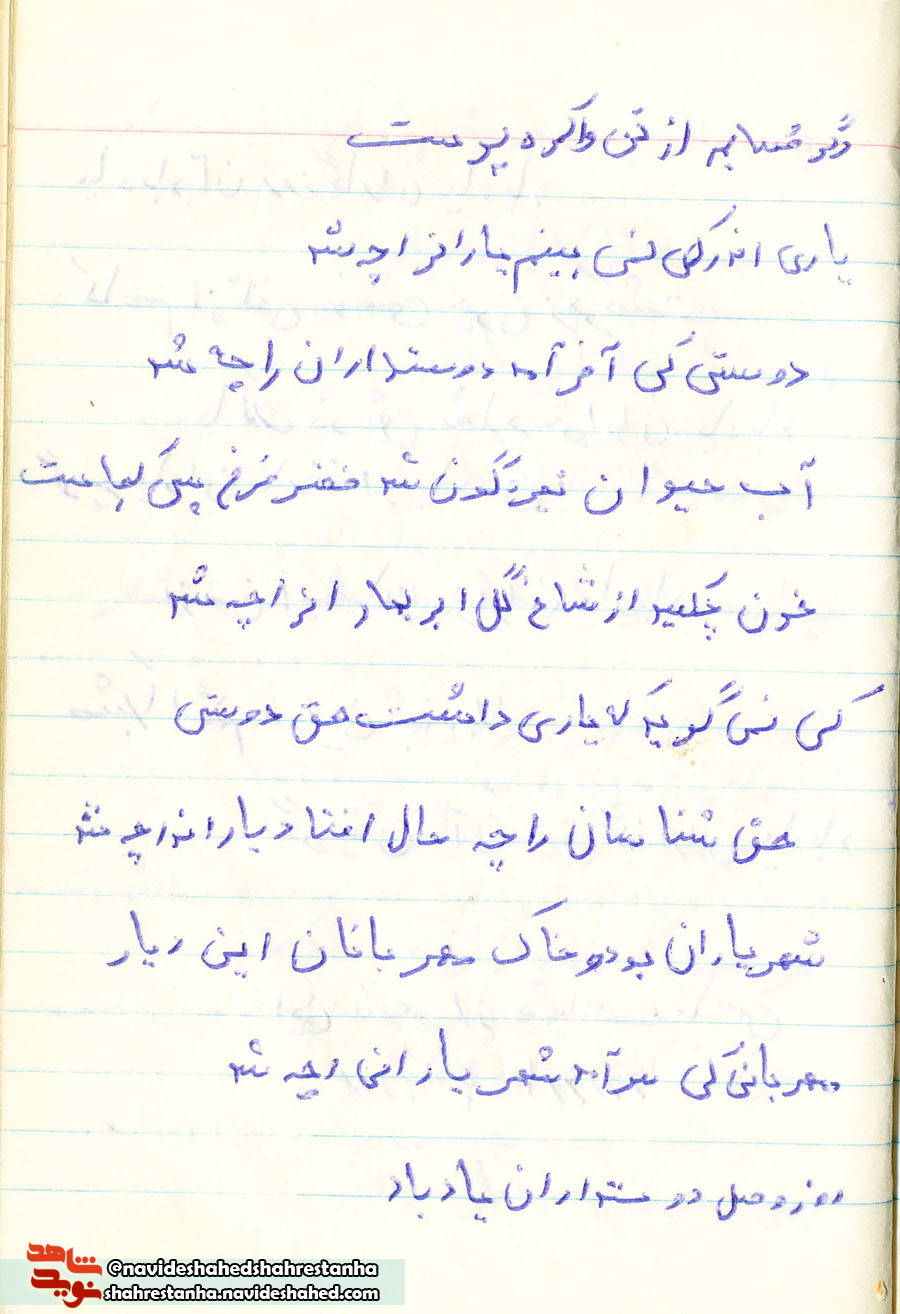 از تن واکرده پوست
یاری اندر کس نمی بینم یارانرا چه شد
دوستی کی آخر آمد دوستداران را چه شد
آب حیوان تیره گون شد خضر فرخ پی کجاست
خون چکید از شاخ گل ابر بهارانرا چه شد
کس نمی گوید که یاری داشت حق دوستی
حق شناسان را چه حال افتاد یارانرا چه شد
شهریاران بود و خاک مهربانان این دیار
مهربانی کی سرآمد شهریارانرا چه شد
روز وصل دوستداران یاد باد
نوید شاهد
@navideshahedshahrestanha
shahrestanha.navideshahed.com